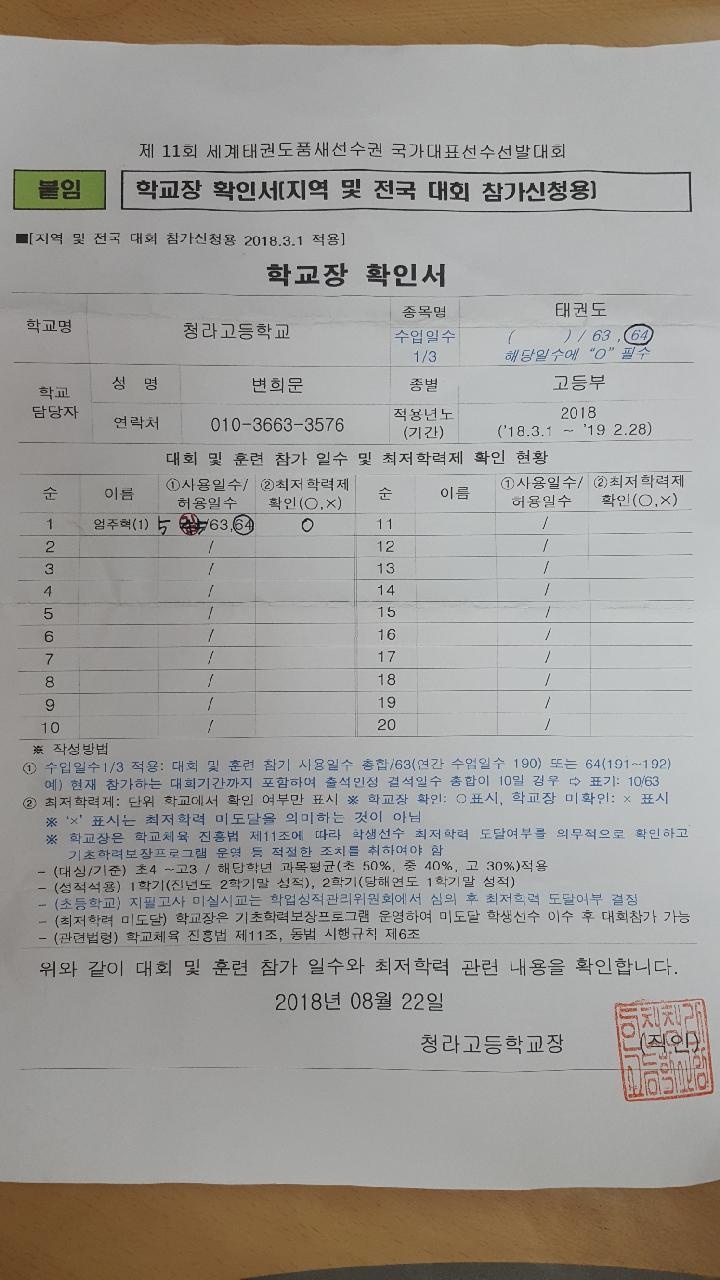 제 11회 세계태권도품새선수권 국가대표선수선발대회
붙임 학교장 확인서(지역 및 전국 대회 참가신청용)
■[지역 및 전국 대회 참가신청용 2018.3.1 적용]
학교장 확인서
학교명 청라고등학교 종목명 태권도
수업일수 1/3 ( ) / 63 , 64
해당일수에 "O" 필수
학교 담당자 성 명 변희문 종별 고등부
연락처 010-3663-3576 적용년도 (기간) 2018
('18.3.1 ~ '19 2.28)
대회 및 훈련 참가 일수 및 최저학력제 확인 현황
순 이름 ①사용일수/허용일수 ②최저학력제 확인(○,×) 순 이름 ①사용일수/허용일수 ②최저학력제 확인(○,×)
1 엄주혁(1) 5 /63,64 O 11 /
2 / 12 /
3 / 13 /
4 / 14 /
5 / 15 /
6 / 16 /
7 / 17 /
8 / 18 /
9 / 19 /
10 / 20 /
※ 작성방법
① 수업일수1/3 적용: 대회 및 훈련 참기 시용일수 총합/63(연간 수업일수 190) 또는 64(191~192)
예) 현재 참가하는 대회기간까지 포함하여 출석인정 결석일수 총합이 10일 경우 ⇨ 표기: 10/63
② 최저학력제: 단위 학교에서 확인 여부만 표시 ※ 학교장 확인: ○표시, 학교장 미확인: × 표시
※ '×' 표시는 최저학력 미도달을 의미하는 것이 아님
※ 학교장은 학교체육 진흥법 제11조에 따라 학생선수 최저학력 도달여부를 의무적으로 확인하고
기초학력보장프로그램 운영 등 적절한 조치를 취하여야 함
- (대상/기준) 초4 ~고3 / 해당학년 과목평균(초 50%, 중 40%, 고 30%)적용
- (성적석용) 1학기(전년도 2학기말 성적), 2학기(당해연도 1학기말 성적)
- (초등학교) 지필고사 미실시교는 학업성적관리위원회에서 심의 후 최저학력 도달여부 결정
- (최저학력 미도달) 학교장은 기초학력보장프로그램 운영하여 미도달 학생선수 이수 후 대회참가 가능
- (관련법령) 학교체육 진흥법 제11조, 동법 시행규칙 제6조
위와 같이 대회 및 훈련 참가 일수와 최저학력 관련 내용을 확인합니다.
2018년 08월 22일
청라고등학교장 (직인)